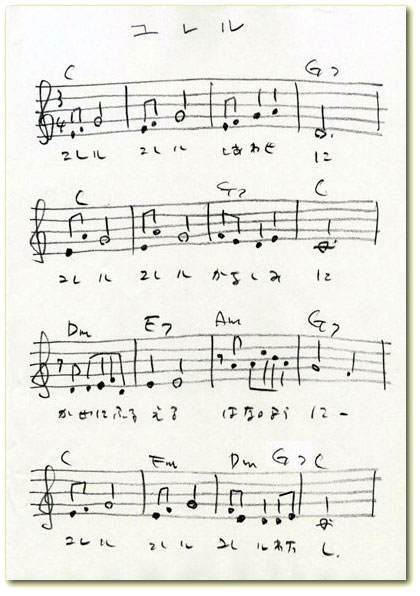 ユレル
C G7
3
4
ユレル ユレル しあわせ に
C G7 C
ユレル ユレル かなしみ に
Dm E7 Am G7
かぜにふるえる はなのように
C Em Dm G7 C
ユレル ユレル ユレルわたし